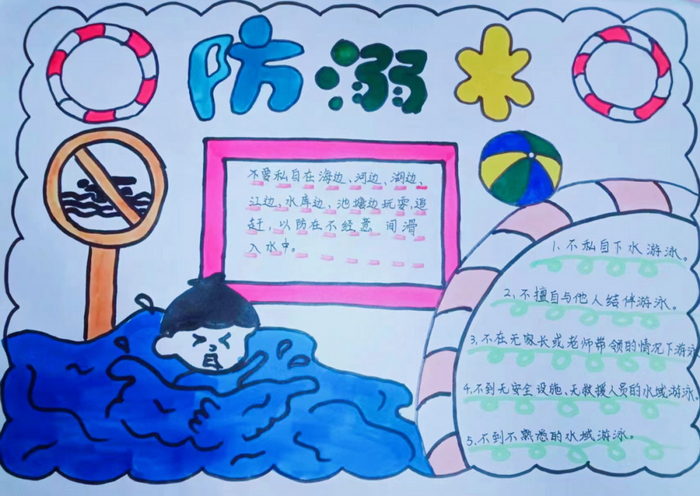 防溺水
不要私自在海边、河边、湖边、
江边、水库边、池塘边玩耍、追
赶，以防在不经意间滑
入水中。
1、不私自下水游泳。
2、不擅自与他人结伴游泳。
3、不在无家长或老师带领的情况下游泳
4、不到无安全设施、无救援人员的水域游泳。
5、不到不熟悉的水域游泳。